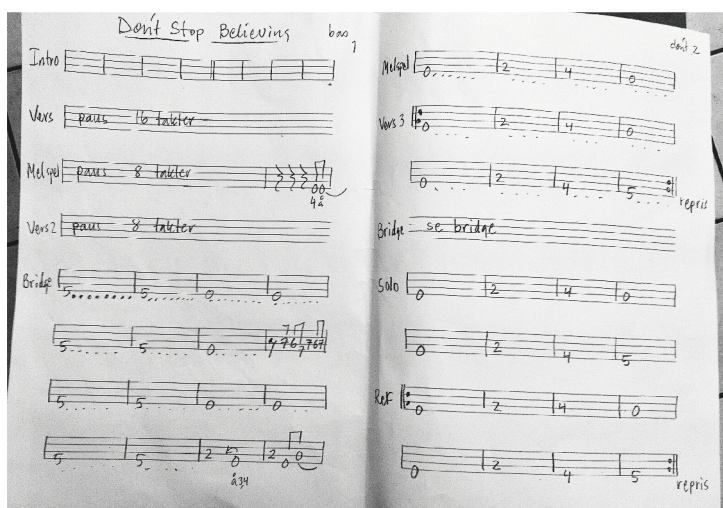 Don't Stop Believing bas 1
Intro
Vers paus 16 takter
Melspel paus 8 takter 0 0
4 å
Vers 2 paus 8 takter
Bridge 5 5 0 0
5 5 0
5 5 0 0
5 5 2 0 2 0 0
å 3,4
don't 2
Melspel 0 2 4 0
Vers 3 0 2 4 0
0 2 4 5 repris
Bridge se bridge
Solo 0 2 4 0
0 2 4 5
Ref 0 2 4 0
0 2 4 5 repris